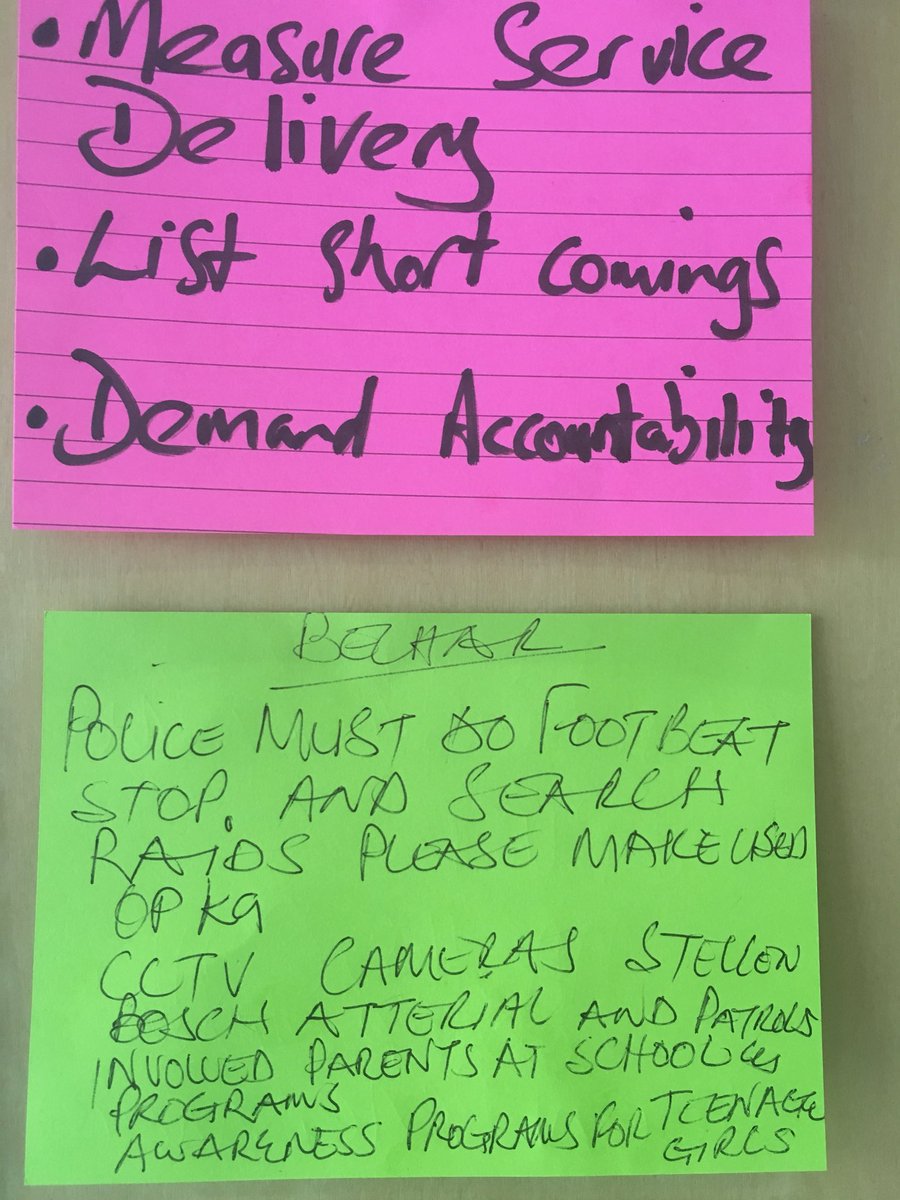 • Measure Service
Delivery
• List short comings
• Demand Accountability
BELHAR
POLICE MUST DO FOOT BEAT
STOP. AND SEARCH
RAIDS PLEASE MAKE USED
OF K9
CCTV CAMERAS STELLEN
BOSCH ATTERIAL AND PATROLS
INVOLVED PARENTS AT SCHOOL
PROGRAMS
AWARENESS PROGRAMS FOR TEENAGE
GIRLS